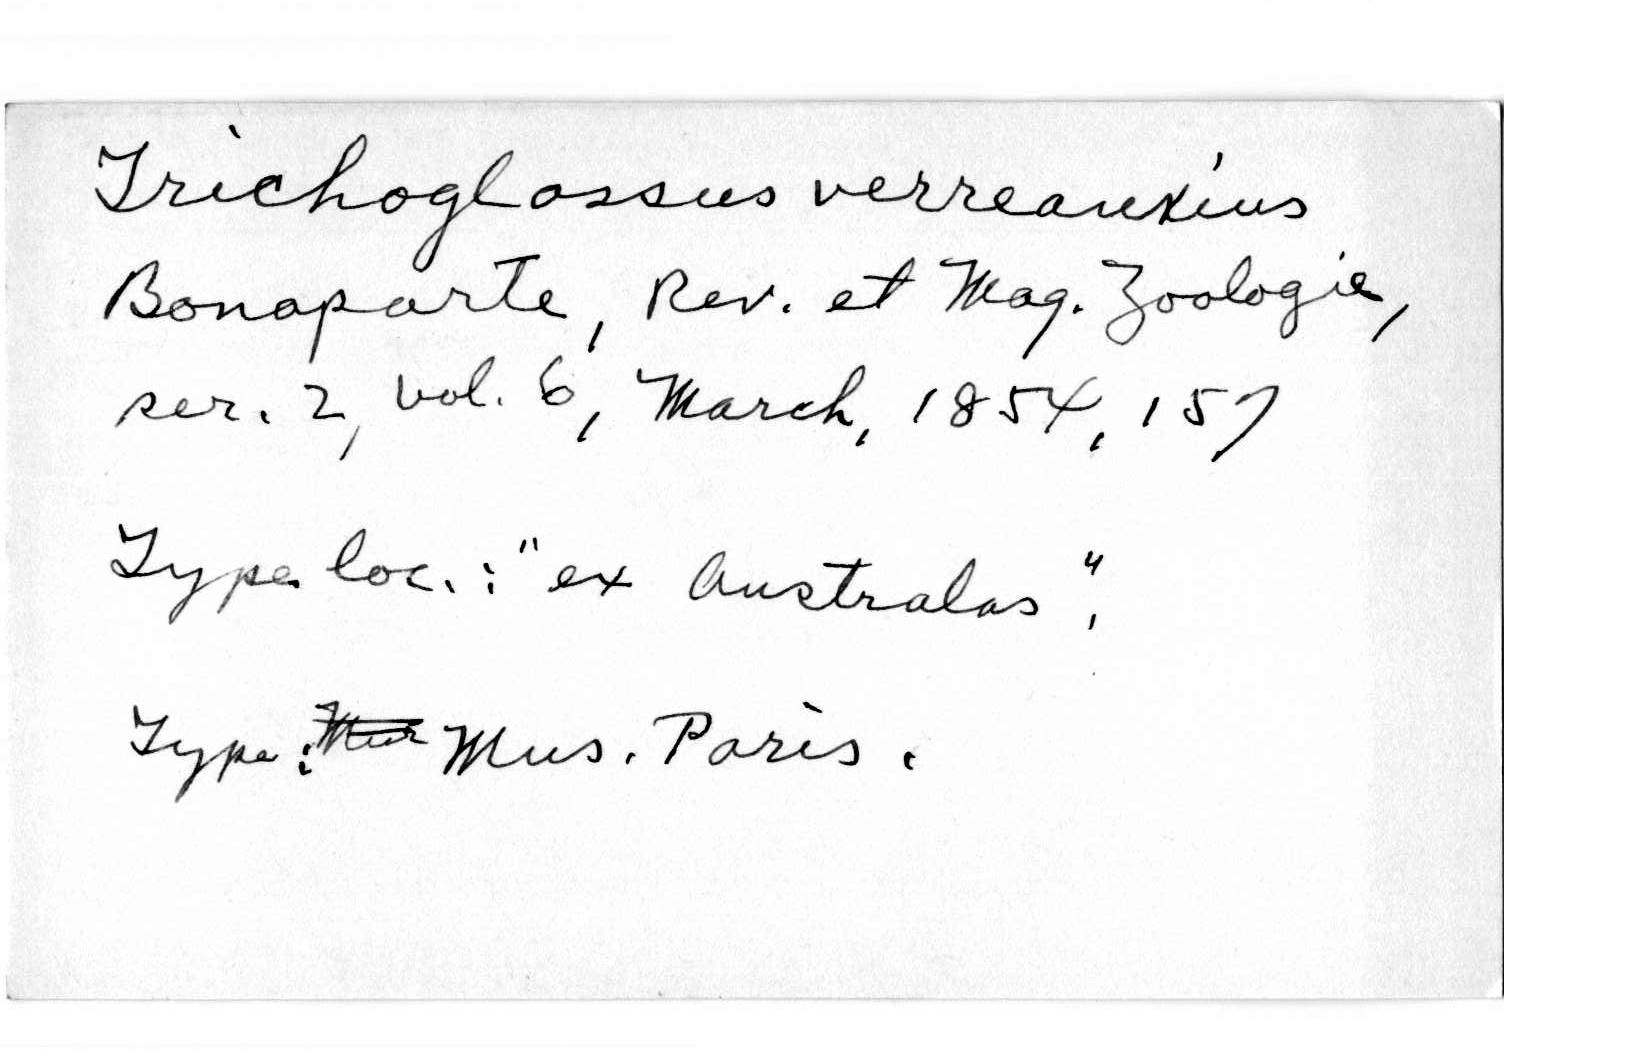 Trichoglossus verreauxius
Bonaparte, Rev. et Mag. Zoologie,
ser. 2, vol. 6, March, 1854, 157
Type loc.: "ex Australas".
Type: Mus. Paris.